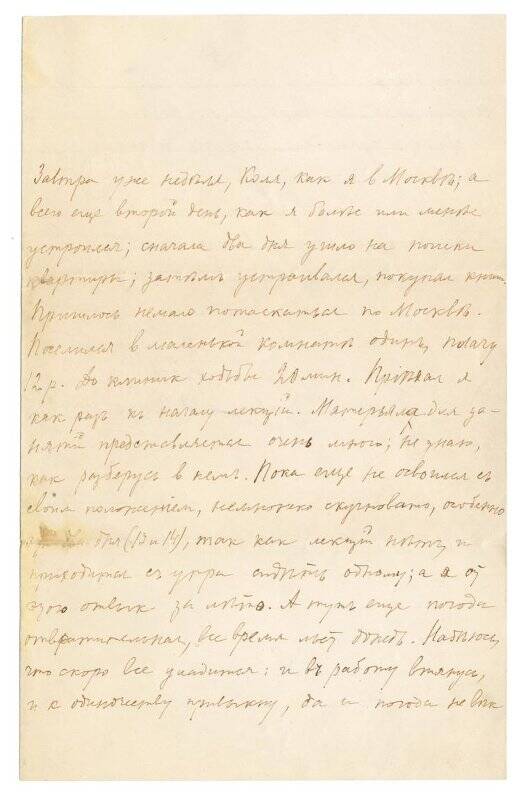 Завтра уже недѣля, Коля, какъ я в Москвѣ; а
всего еще второй день, как я болѣе или менѣе
устроился; сначала два дня ушло на поиски
квартиры; затѣмъ устраивался, покупал книг.
Пришлось немало потаскаться по Москвѣ.
Поселился в маленькой комнатѣ один, плачу
12 р. До клиник ходьбы 20 мин. Пріѣхал я
как раз къ началу лекцій. Матерьяла для за-
нятій представляется очень много; не знаю,
как разберусь в немъ. Пока еще не освоился съ
своим положеніем, немножко скучновато, особенно
дня (13 и 14), так как лекцій нѣтъ, и
приходится съ утра сидѣть одному; а я от
этого отвык за лѣто. А тутъ еще погода
отвратительная, все время льет дождь. Надѣюсь,
что скоро все уладится: и въ работу втянусь,
и к одиночеству привыкну, да и погода не вѣк